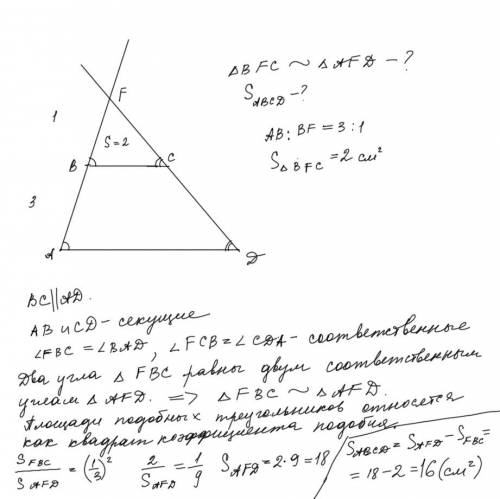 △BFC ~ △AFD - ?
S_ABCD - ?
AB : BF = 3 : 1
S_△BFC = 2 см²
F
1
S=2
B
C
3
A
D
BC||AD.
AB и CD - секущие
∠FBC = ∠BAD, ∠FCB = ∠CDA - соответственные
Два угла △ FBC равны двум соответственным
углам △ AFD. => △ FBC ~ △ AFD.
Площади подобных треугольников относятся
как квадрат коэффициента подобия.
S_FBC / S_AFD = (1/3)²   2 / S_AFD = 1/9   S_AFD = 2·9 = 18
S_ABCD = S_AFD - S_FBC =
= 18 - 2 = 16 (см²)